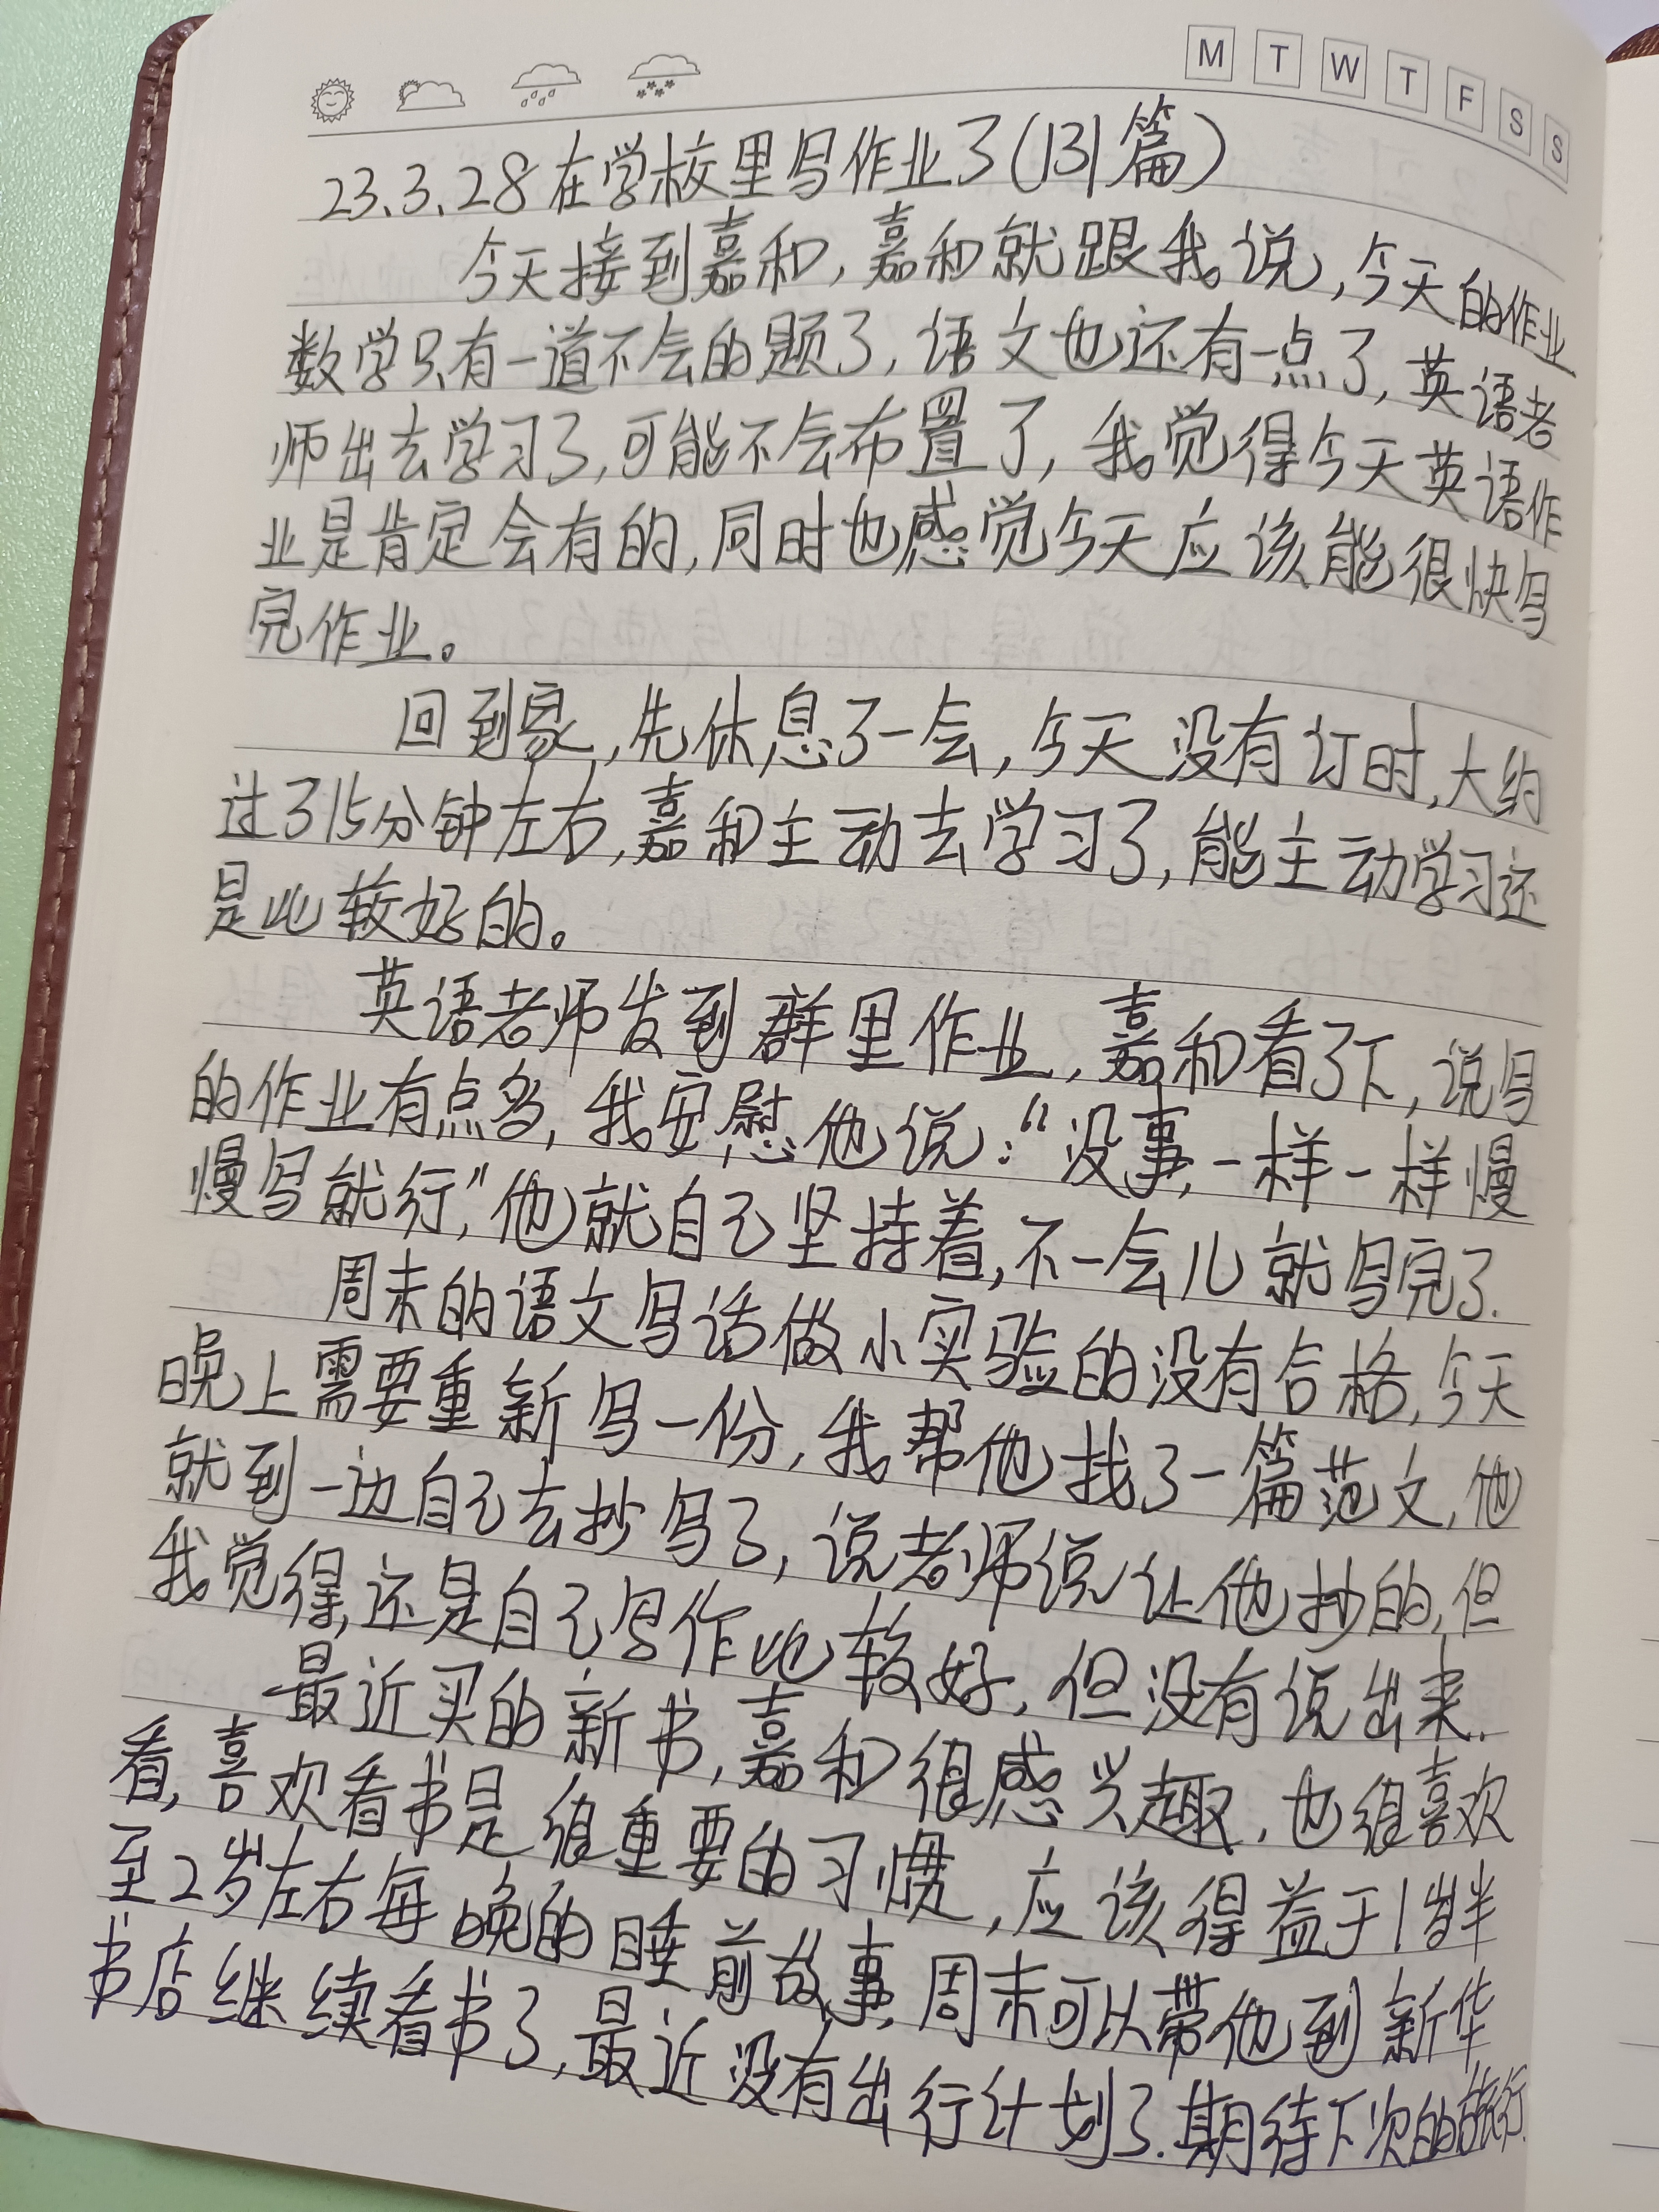 M T W T F S S
23.3.28在学校里写作业了(131篇)
今天接到嘉和,嘉和就跟我说,今天的作业
数学只有一道不会的题了,语文也还有一点了,英语老
师出去学习了,可能不会布置了,我觉得今天英语作
业是肯定会有的,同时也感觉今天应该能很快写
完作业。
回到家,先休息了一会,今天没有订时,大约
过了15分钟左右,嘉和主动去学习了,能主动学习还
是比较好的。
英语老师发到群里作业,嘉和看了下,说写
的作业有点多,我安慰他说:“没事,一样一样慢
慢写就行,”他就自己坚持着,不一会儿就写完了.
周末的语文写话做小实验的没有合格,今天
晚上需要重新写一份,我帮他找了一篇范文,他
就到一边自己去抄写了,说老师说让他抄的,但
我觉得,还是自己写作比较好,但没有说出来.
最近买的新书,嘉和很感兴趣,也很喜欢
看,喜欢看书是很重要的习惯,应该得益于1岁半
至2岁左右每晚的睡前故事,周末可以带他到新华
书店继续看书了,最近没有出行计划了.期待下次的旅行.